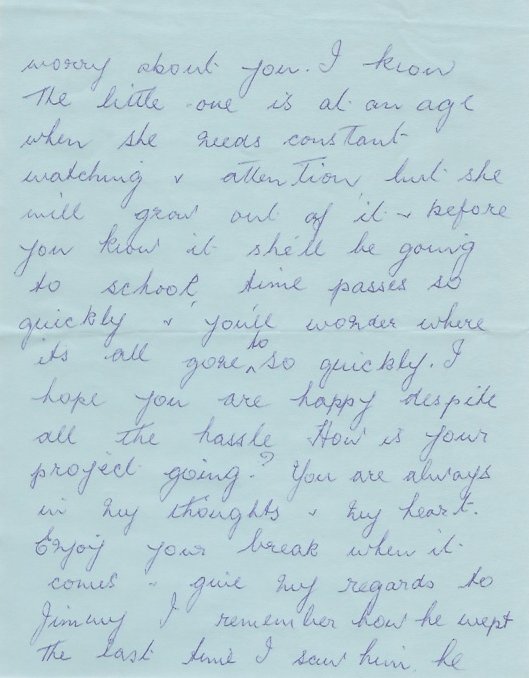 worry about you. I know
The little one is at an age
when she needs constant
watching & attention but she
will grow out of it & before
you know it she'll be going
to school, time passes so
quickly & you'll wonder where
its all gone to so quickly. I
hope you are happy despite
all the hassle How is your
project going? You are always
in my thoughts & my heart.
Enjoy your break when it
comes & give my regards to
Jimmy I remember how he wept
the last time I saw him, he